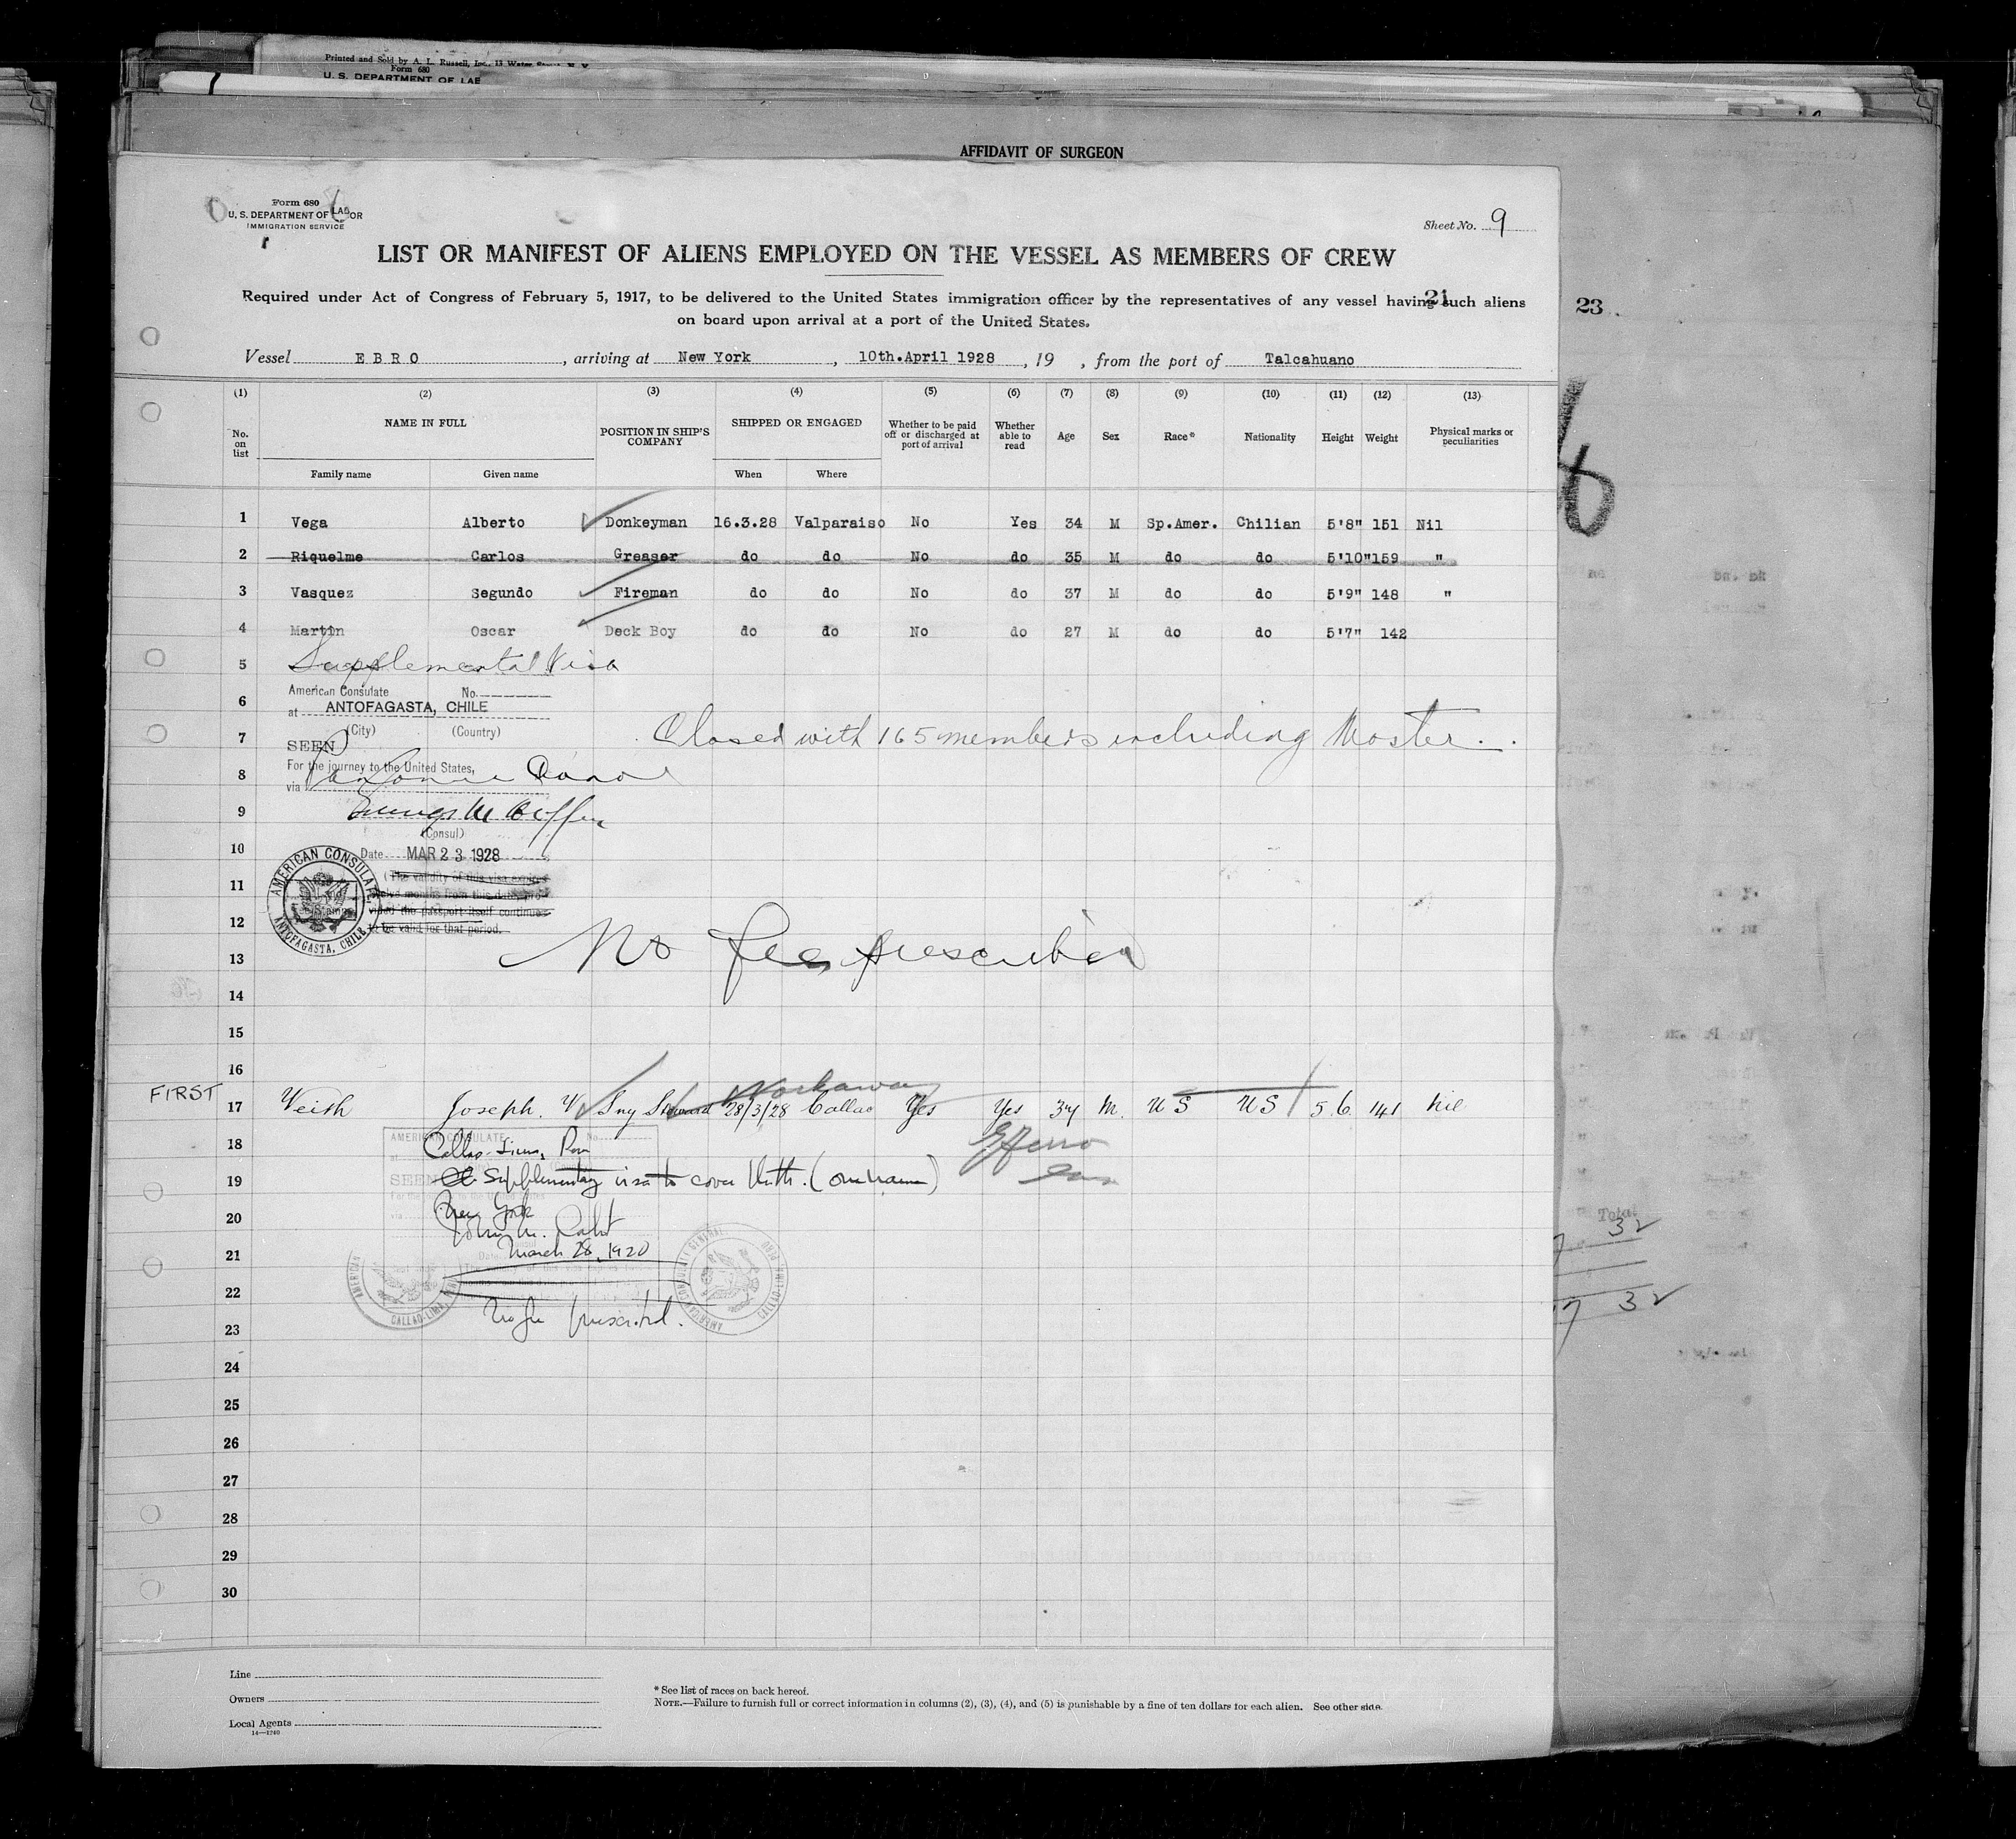 Printed and Sold by A. L. Russell, Inc., 13 Water
Form 680
U. S. DEPARTMENT OF LAB
AFFIDAVIT OF SURGEON
Form 680
U. S. DEPARTMENT OF LABOR
IMMIGRATION SERVICE
Sheet No. 9
LIST OR MANIFEST OF ALIENS EMPLOYED ON THE VESSEL AS MEMBERS OF CREW
Required under Act of Congress of February 5, 1917, to be delivered to the United States immigration officer by the representatives of any vessel having such aliens
21
23
on board upon arrival at a port of the United States.
Vessel EBRO, arriving at New York, 10th.April 1928, 19 , from the port of Talcahuano
(1) (2) (3) (4) (5) (6) (7) (8) (9) (10) (11) (12) (13)
No. on list NAME IN FULL POSITION IN SHIP'S COMPANY SHIPPED OR ENGAGED Whether to be paid off or discharged at port of arrival Whether able to read Age Sex Race* Nationality Height Weight Physical marks or peculiarities
Family name Given name When Where
1 Vega Alberto Donkeyman 16.3.28 Valparaiso No Yes 34 M Sp.Amer. Chilian 5'8" 151 Nil
2 Riquelme Carlos Greaser do do No do 35 M do do 5'10" 159 "
3 Vasquez Segundo Fireman do do No do 37 M do do 5'9" 148 "
4 Martin Oscar Deck Boy do do No do 27 M do do 5'7" 142
5 Supplemental Visa
American Consulate No.
6
at ANTOFAGASTA, CHILE
(City) (Country)
7 Closed with 165 members including Master.
SEEN
For the journey to the United States,
8
via Canal
9
(Consul)
10 Date MAR 23 1928
(The validity of this visa expires
11 twelve months from this date, pro-
vided the passport itself continues
12 to be valid for that period.
AMERICAN CONSULATE, ANTOFAGASTA, CHILE
No fee prescribed
13
14
15
16
Workaway
FIRST 17 Veith Joseph. V. Steward 28/3/28 Callao Yes Yes 34 M. US US 5.6. 141 Nil
AMERICAN CONSULATE No.
18 Callao-Lima, Peru
SEEN
19 Supplementary visa to cover Veith. (one name)
20 New York
21 March 28, 1928
22
AMERICAN CALLAO-LIMA
AMERICAN CONSULATE GENERAL CALLAO-LIMA, PERU
No fee prescribed.
23
24
25
26
27
28
29
30
Total
32
32
Line
Owners
Local Agents
14—1240
* See list of races on back hereof.
NOTE.—Failure to furnish full or correct information in columns (2), (3), (4), and (5) is punishable by a fine of ten dollars for each alien. See other side.